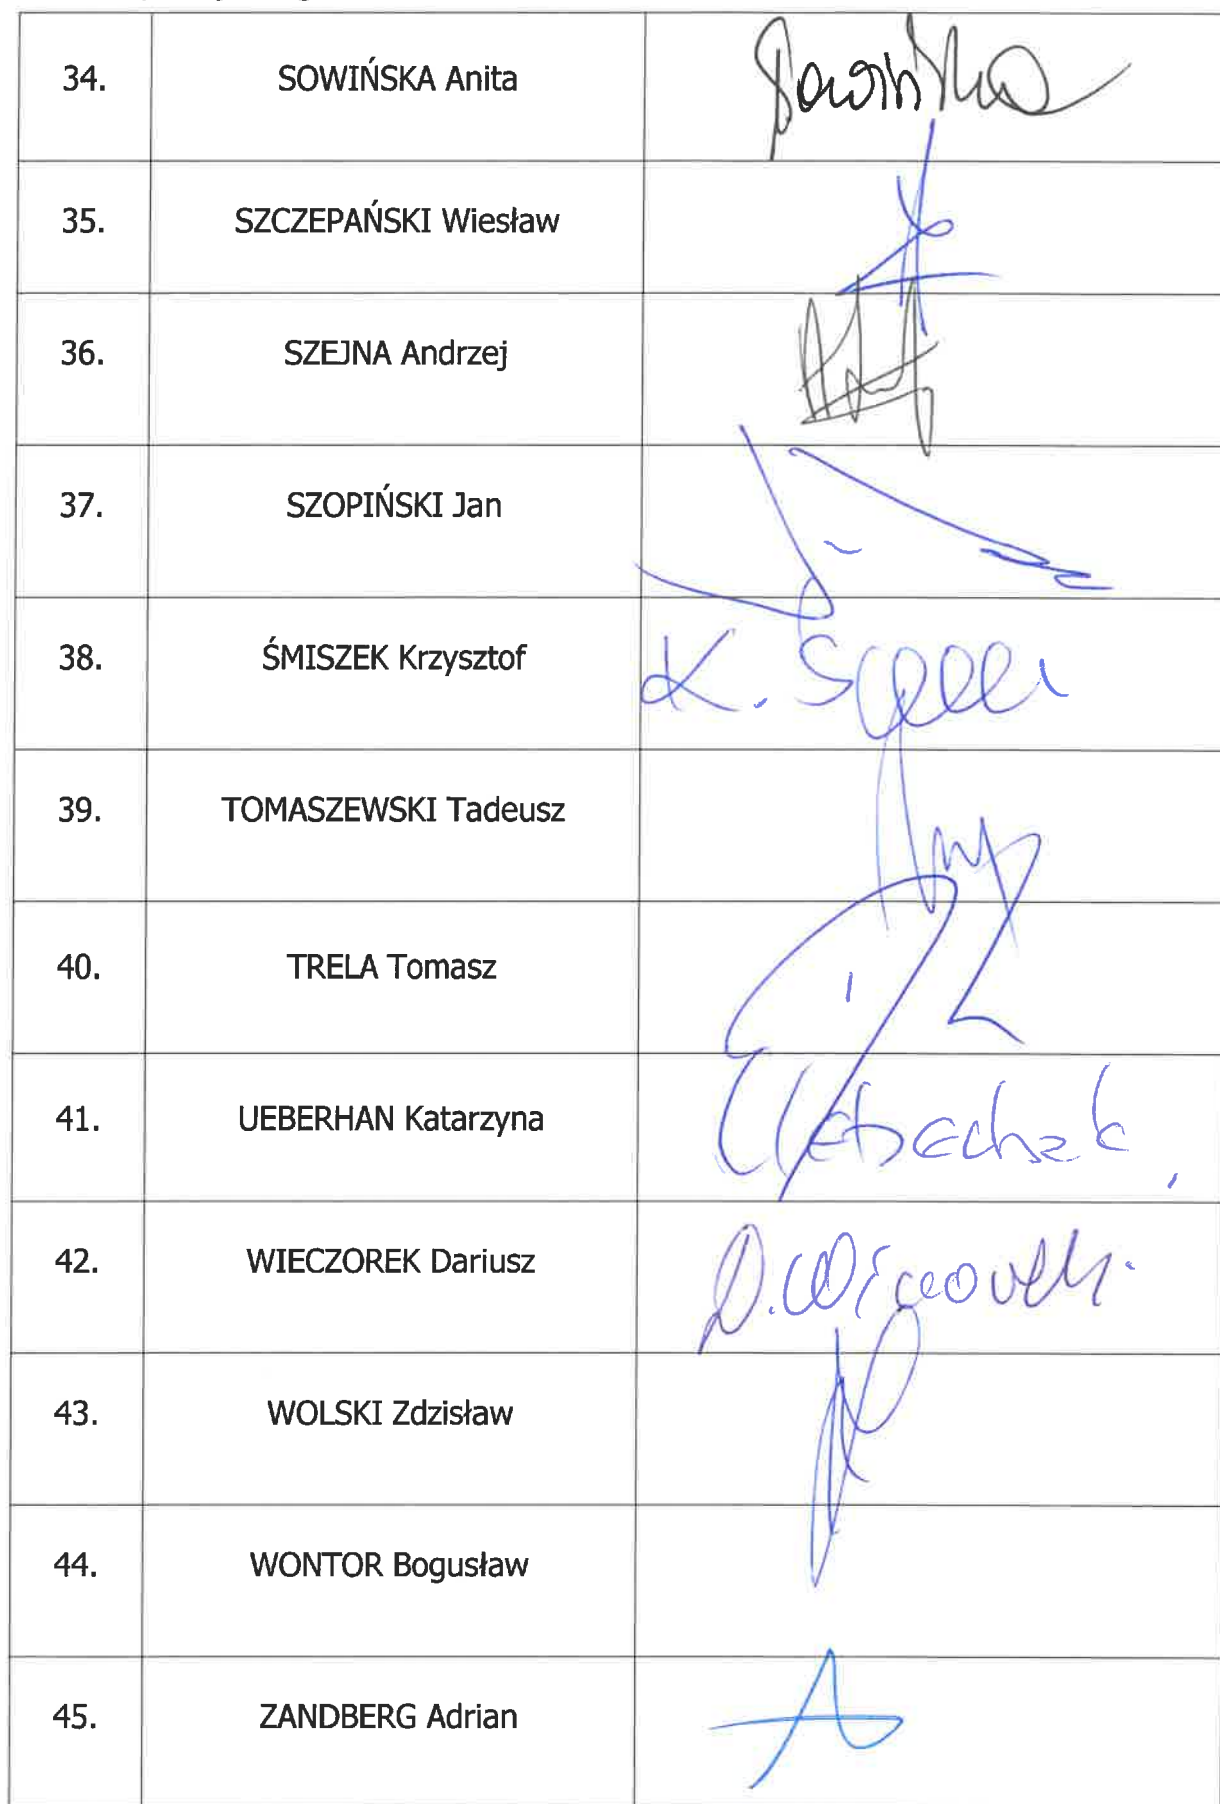 34. SOWIŃSKA Anita Sowińska
35. SZCZEPAŃSKI Wiesław
36. SZEJNA Andrzej
37. SZOPIŃSKI Jan
38. ŚMISZEK Krzysztof K.
39. TOMASZEWSKI Tadeusz
40. TRELA Tomasz
41. UEBERHAN Katarzyna
42. WIECZOREK Dariusz D.
43. WOLSKI Zdzisław
44. WONTOR Bogusław
45. ZANDBERG Adrian